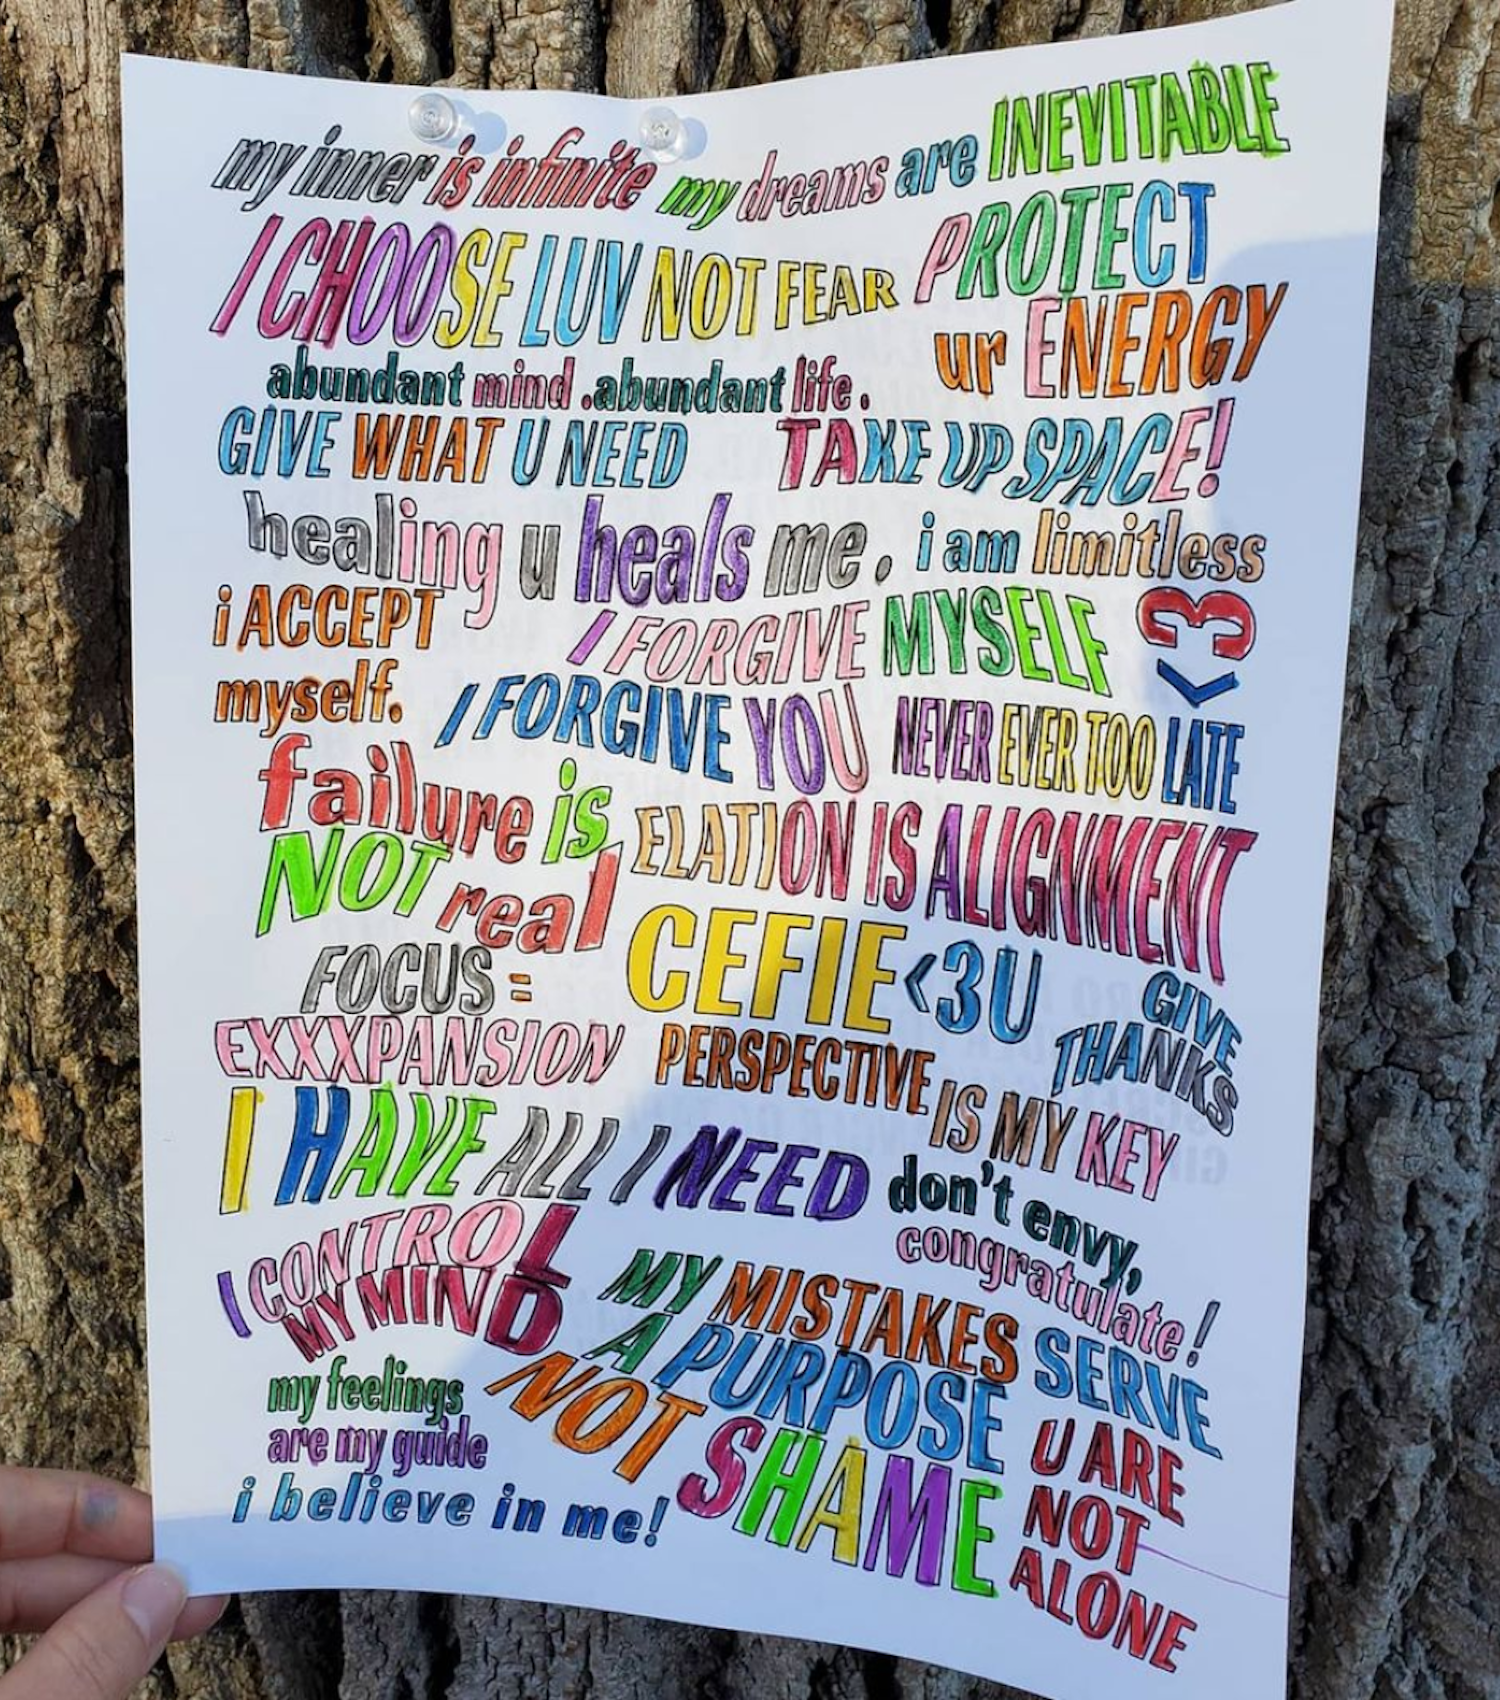 my inner is infinite my dreams are INEVITABLE
I CHOOSE LUV NOT FEAR
PROTECT
ur ENERGY
abundant mind . abundant life .
GIVE WHAT U NEED
TAKE UP SPACE!
healing u heals me .
i am limitless
<3
i ACCEPT
myself.
I FORGIVE MYSELF
I FORGIVE YOU
NEVER EVER TOO LATE
failure is
NOT real
ELATION IS ALIGNMENT
CEFIE <3 U
FOCUS =
EXXXPANSION
GIVE
THANKS
PERSPECTIVE IS MY KEY
I HAVE ALL I NEED
don't envy,
congratulate!
I CONTROL
MY MIND
MY MISTAKES SERVE
A PURPOSE
NOT SHAME
my feelings
are my guide
i believe in me!
U ARE
NOT
ALONE